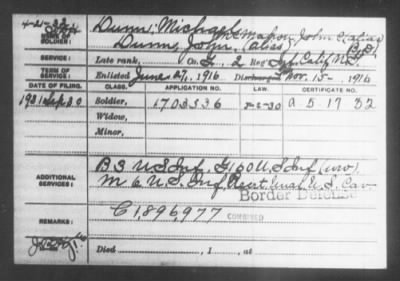 4-21-33
NAME OF SOLDIER: Dunn, Michael McMahon, John (alias)
Dunn, John, (alias)
SERVICE: Late rank, Co. L, 2 Reg't Inf. Calif. N.G.
TERM OF SERVICE: Enlisted June 27, 1916. Discharged Nov. 15-, 1916
DATE OF FILING. CLASS. APPLICATION NO. LAW. CERTIFICATE NO.
1931 Sep 30 Soldier, 1703536 7-2-30 A 5 17 32
Widow,
Minor,
ADDITIONAL SERVICES: B 3 U.S. Inf.
M 6 U.S. Inf. U.S. Cav.
Border Defense
REMARKS: C1896977 COMBINED
Died , 1 , at